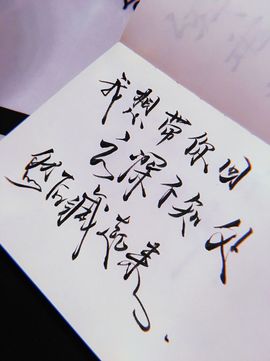 我想带你回
云深不知处
然后藏起来.